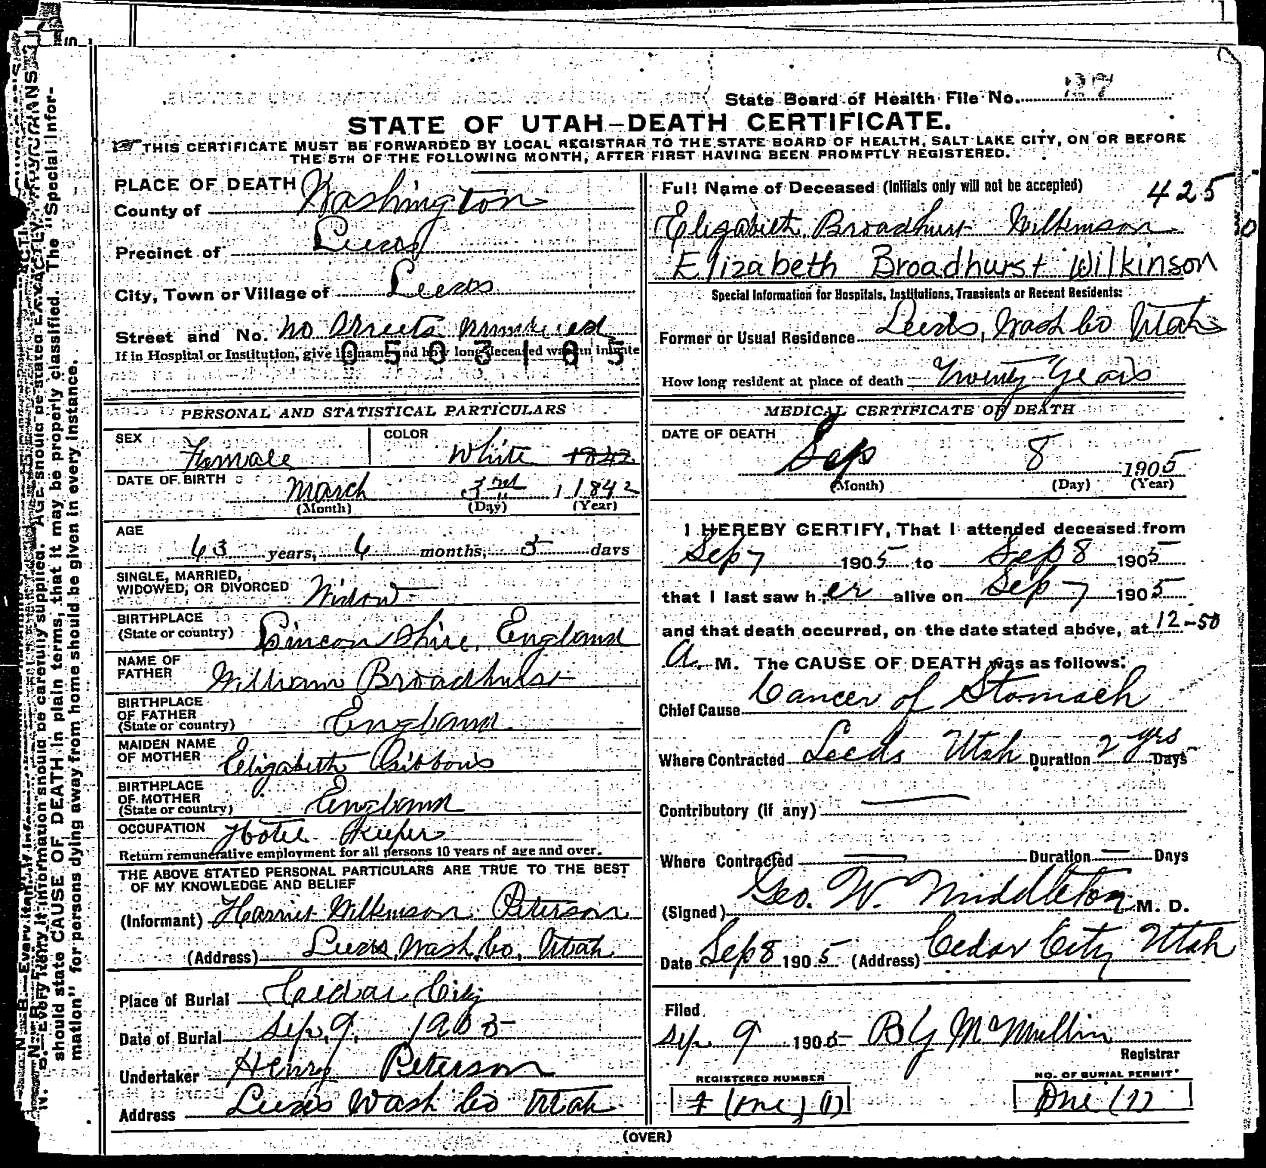 State Board of Health File No. 127
STATE OF UTAH—DEATH CERTIFICATE.
THIS CERTIFICATE MUST BE FORWARDED BY LOCAL REGISTRAR TO THE STATE BOARD OF HEALTH, SALT LAKE CITY, ON OR BEFORE
THE 5TH OF THE FOLLOWING MONTH, AFTER FIRST HAVING BEEN PROMPTLY REGISTERED.
PLACE OF DEATH
County of Washington
Precinct of Leeds
City, Town or Village of Leeds
Street and No. No Streets Numbered
If in Hospital or Institution, give its name and how long deceased was an inmate
0503185
PERSONAL AND STATISTICAL PARTICULARS
SEX Female COLOR White 1842
DATE OF BIRTH March 3rd 1842
(Month) (Day) (Year)
AGE 63 years, 6 months, 5 days
SINGLE, MARRIED,
WIDOWED, OR DIVORCED Widow
BIRTHPLACE
(State or country) Lincon Shire, England
NAME OF
FATHER William Broadhurst
BIRTHPLACE
OF FATHER
(State or country) England
MAIDEN NAME
OF MOTHER Elizabeth Gibbons
BIRTHPLACE
OF MOTHER
(State or country) England
OCCUPATION Hotel Keeper
Return remunerative employment for all persons 10 years of age and over.
THE ABOVE STATED PERSONAL PARTICULARS ARE TRUE TO THE BEST
OF MY KNOWLEDGE AND BELIEF
(Informant) Harriet Wilkinson Peterson
(Address) Leeds Wash. Co, Utah
Place of Burial Cedar City
Date of Burial Sep, 9, 1905
Undertaker Henry Peterson
Address Leeds Wash Co Utah
Full Name of Deceased (Initials only will not be accepted) 425
Elizabeth Broadhurst Wilkinson
Elizabeth Broadhurst Wilkinson
Special Information for Hospitals, Institutions, Transients or Recent Residents:
Former or Usual Residence Leeds, Wash Co Utah
How long resident at place of death Twenty Years
MEDICAL CERTIFICATE OF DEATH
DATE OF DEATH Sep 8 1905
(Month) (Day) (Year)
I HEREBY CERTIFY, That I attended deceased from
Sep 7 1905 to Sep 8 1905
that I last saw her alive on Sep 7 1905
and that death occurred, on the date stated above, at 12-50
A. M. The CAUSE OF DEATH was as follows:
Chief Cause Cancer of Stomach
Where Contracted Leeds Utah Duration 2 yrs Days
Contributory (if any)
Where Contracted Duration Days
(Signed) Geo. W. Middleton M. D.
Date Sep 8 1905 (Address) Cedar City Utah
Filed
Sep 9 1905 B Y McMullin
Registrar
REGISTERED NUMBER NO. OF BURIAL PERMIT
1 (One) (1) One (1)
(OVER)
N. B.—Every item of information should be carefully supplied. AGE should be stated EXACTLY. PHYSICIANS
should state CAUSE OF DEATH in plain terms, that it may be properly classified. The "Special Infor-
mation" for persons dying away from home should be given in every instance.